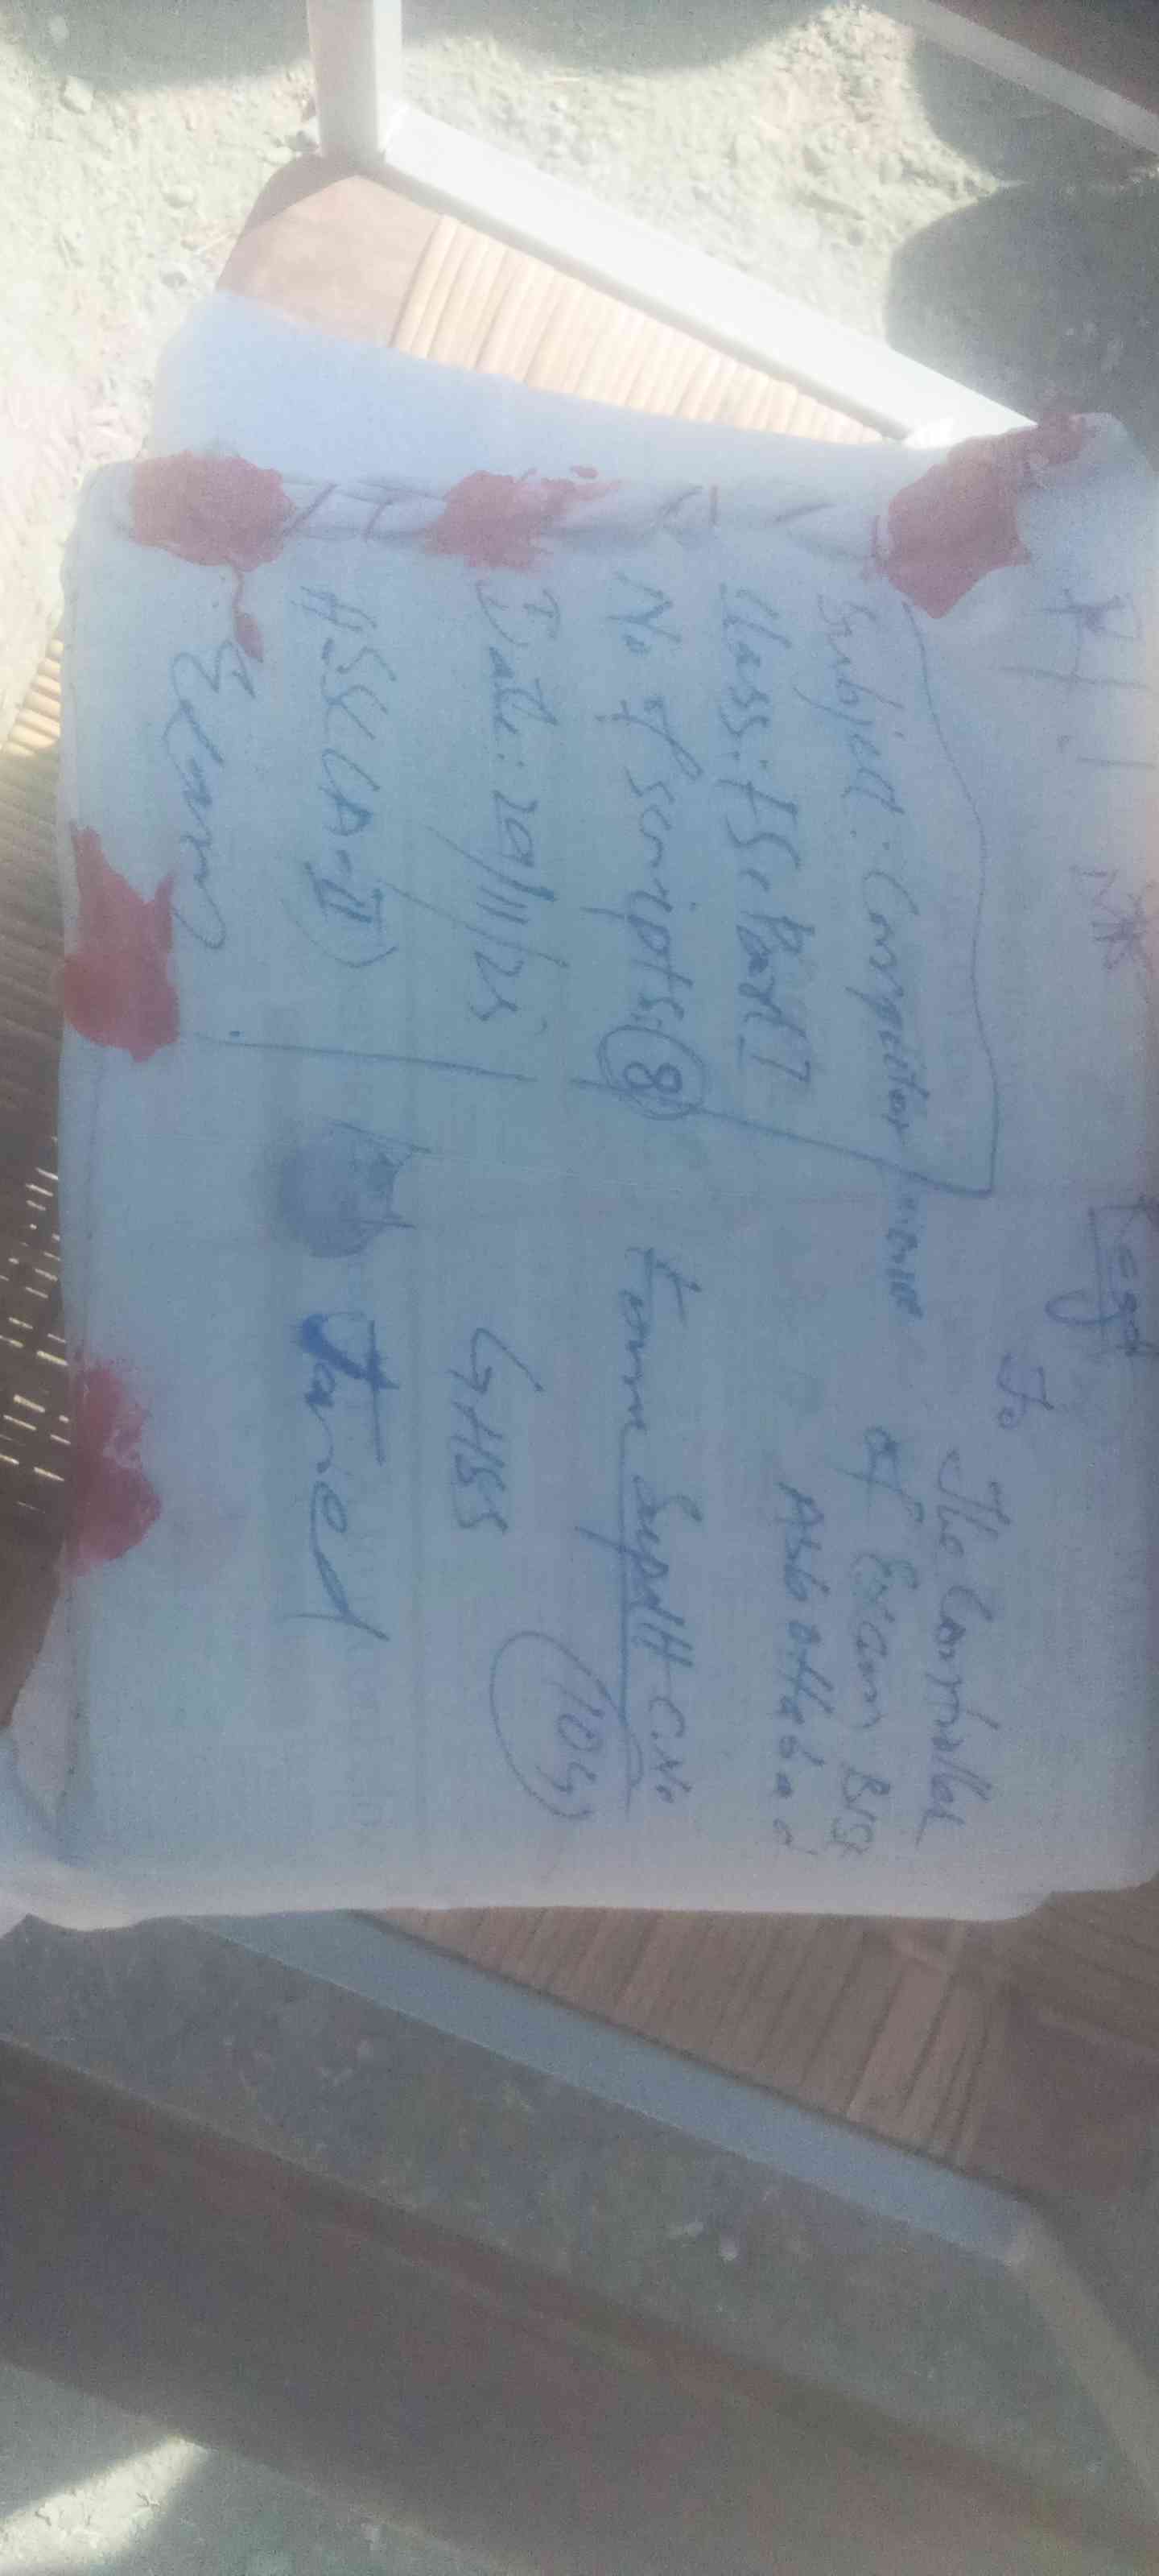 Regd
To
The Controller
of Exam BISE
Abbottabad
Subject: Computer Science
Class: FSc Part I
No of Scripts: 8
Date: 29/11/25
HSSC (A-II)
Exam
From Supdtt C.No
104
GHSS
Jared